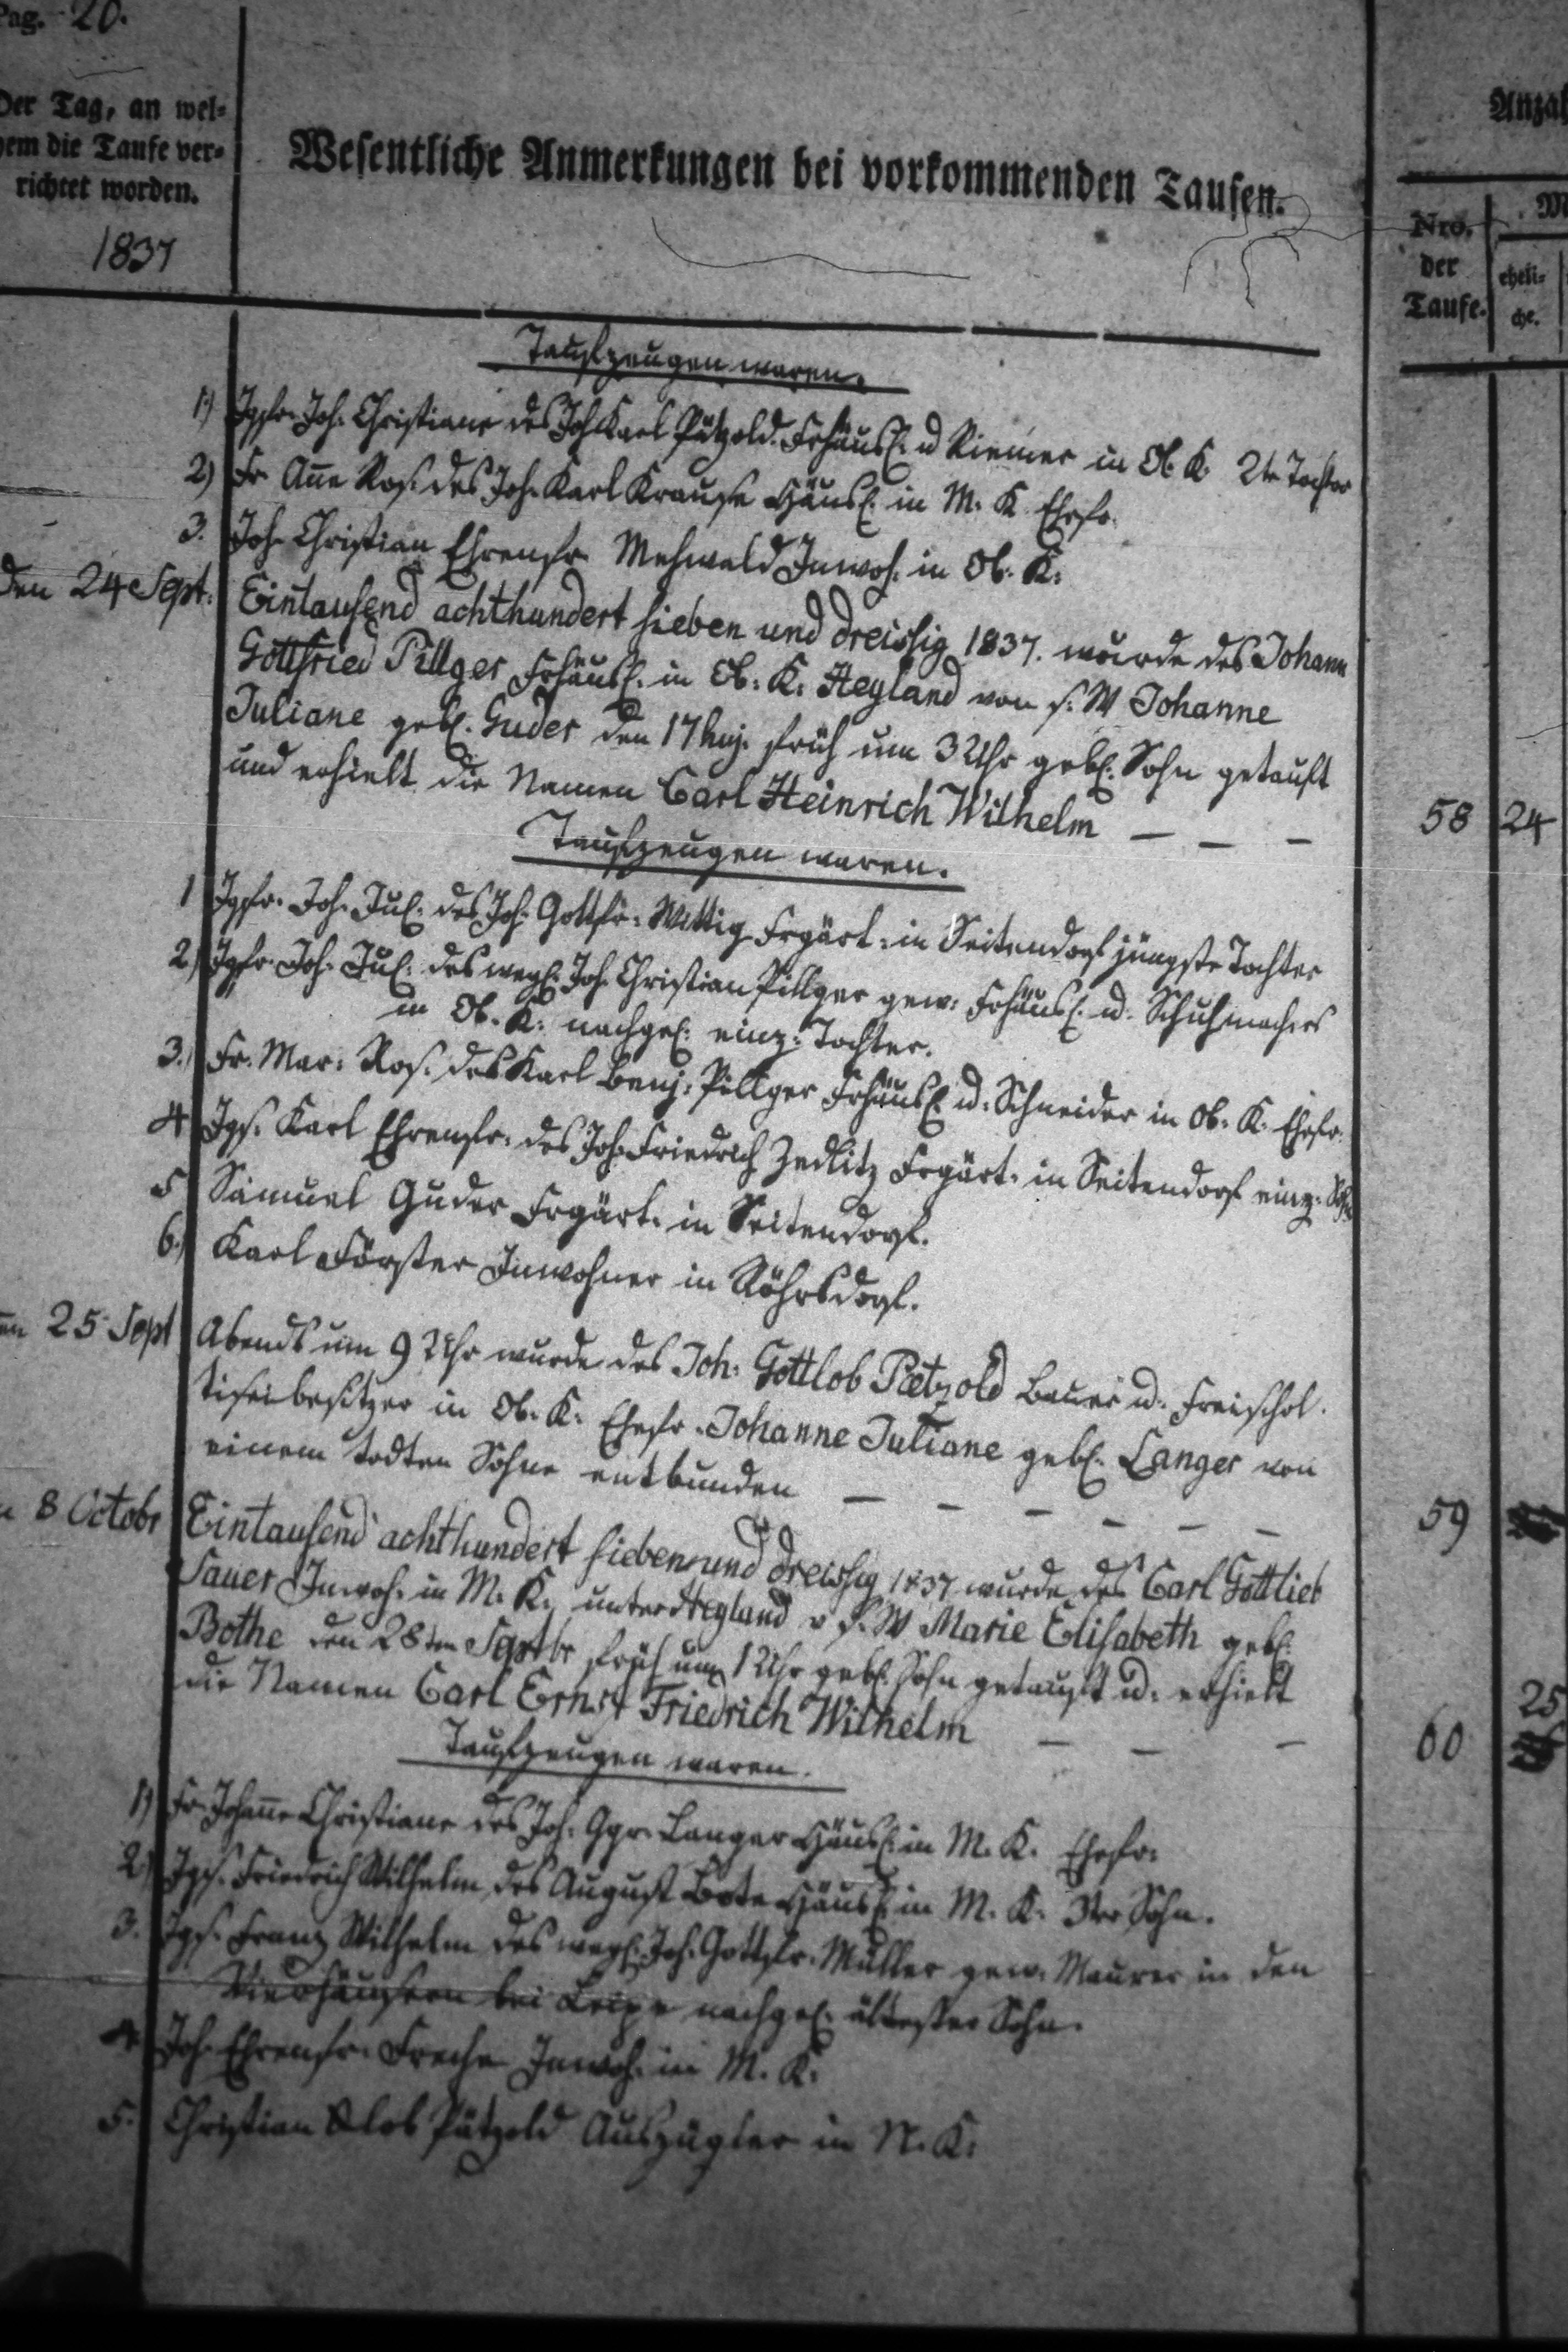 Pag. 20.
Der Tag, an wel-
chem die Taufe ver-
richtet worden.
1837
Wesentliche Anmerkungen bei vorkommenden Taufen.
Nro.
der
Taufe.
eheli-
che.
Taufzeugen waren.
1.) Jgfr. Joh. Christiane des Joh Karl Pätzold. Frhäusl. u Riemer in Ob. K. 2te Tochter
2) Fr Anne Ros. des Joh. Karl Krause Häusl. in M. K. Ehefr.
3. Joh. Christian Ehrenfr. Mehwald Inwoh. in Ob. K.
den 24 Sept. Eintausend achthundert sieben und dreissig 1837. wurde des Johann
Gottfried Pillger Frhäusl. in Ob. K. von s. W Johanne
Juliane geb. Guder den 17 huj. früh um 3 Uhr geb. Sohn getauft
und erhielt die Namen Carl Heinrich Wilhelm — — — 58 24
Taufzeugen waren.
1 Jgfr. Joh. Jul. des Joh. Gottfr. Wittig Frgärt. in Seitendorf jüngste Tochter
2.) Jgfr. Joh. Jul. des weyl. Joh. Christian Pillger gew. Frhäusl. u. Schuhmachers
in Ob. K. nachgel. einz. Tochter.
3.) Fr. Mar. Ros. des Karl Benj. Pillger Frhäusl. u. Schneider in Ob. K. Ehefr.
4 Jgs. Karl Ehrenfr. des Joh. Friedrich Zedlitz Frgärt. in Seitendorf einz. Sohn
5 Samuel Guder Frgärt. in Seitendorf.
6.) Karl Förster Inwohner in Röhrsdorf.
25 Sept Abends um 9 Uhr wurde des Joh. Gottlob Paetzold Bauer u. Freischol.
tiseibesitzer in Ob. K. Ehefr. Johanne Juliane geb. Langer von
einem todten Sohne entbunden — — — — — — 59
8 Octobr Eintausend achthundert sieben und dreissig 1837 wurde des Carl Gottlieb
Sauer Inwoh. in M. K. v s. W Marie Elisabeth geb.
Bothe den 28ten Septbr früh um 1 Uhr geb. Sohn getauft u. erhielt
die Namen Carl Ernst Friedrich Wilhelm — — — 60 25
Taufzeugen waren.
1) Fr. Johanne Christiane des Joh. Ggr. Langer Häusl. in M. K. Ehefr.
2.) Jgs. Friedrich Wilhelm des August Bote Häusl. in M. K. 3ter Sohn.
3. Jgs. Franz Wilhelm des weyl. Joh. Gottfr. Müller gew. Maurer in den
Vierhäusern bei Leipe nachgel. ältester Sohn.
4. Joh. Ehrenfr. Inwoh. in M. K.
5. Christian Pätzold Auszügler in N. K.